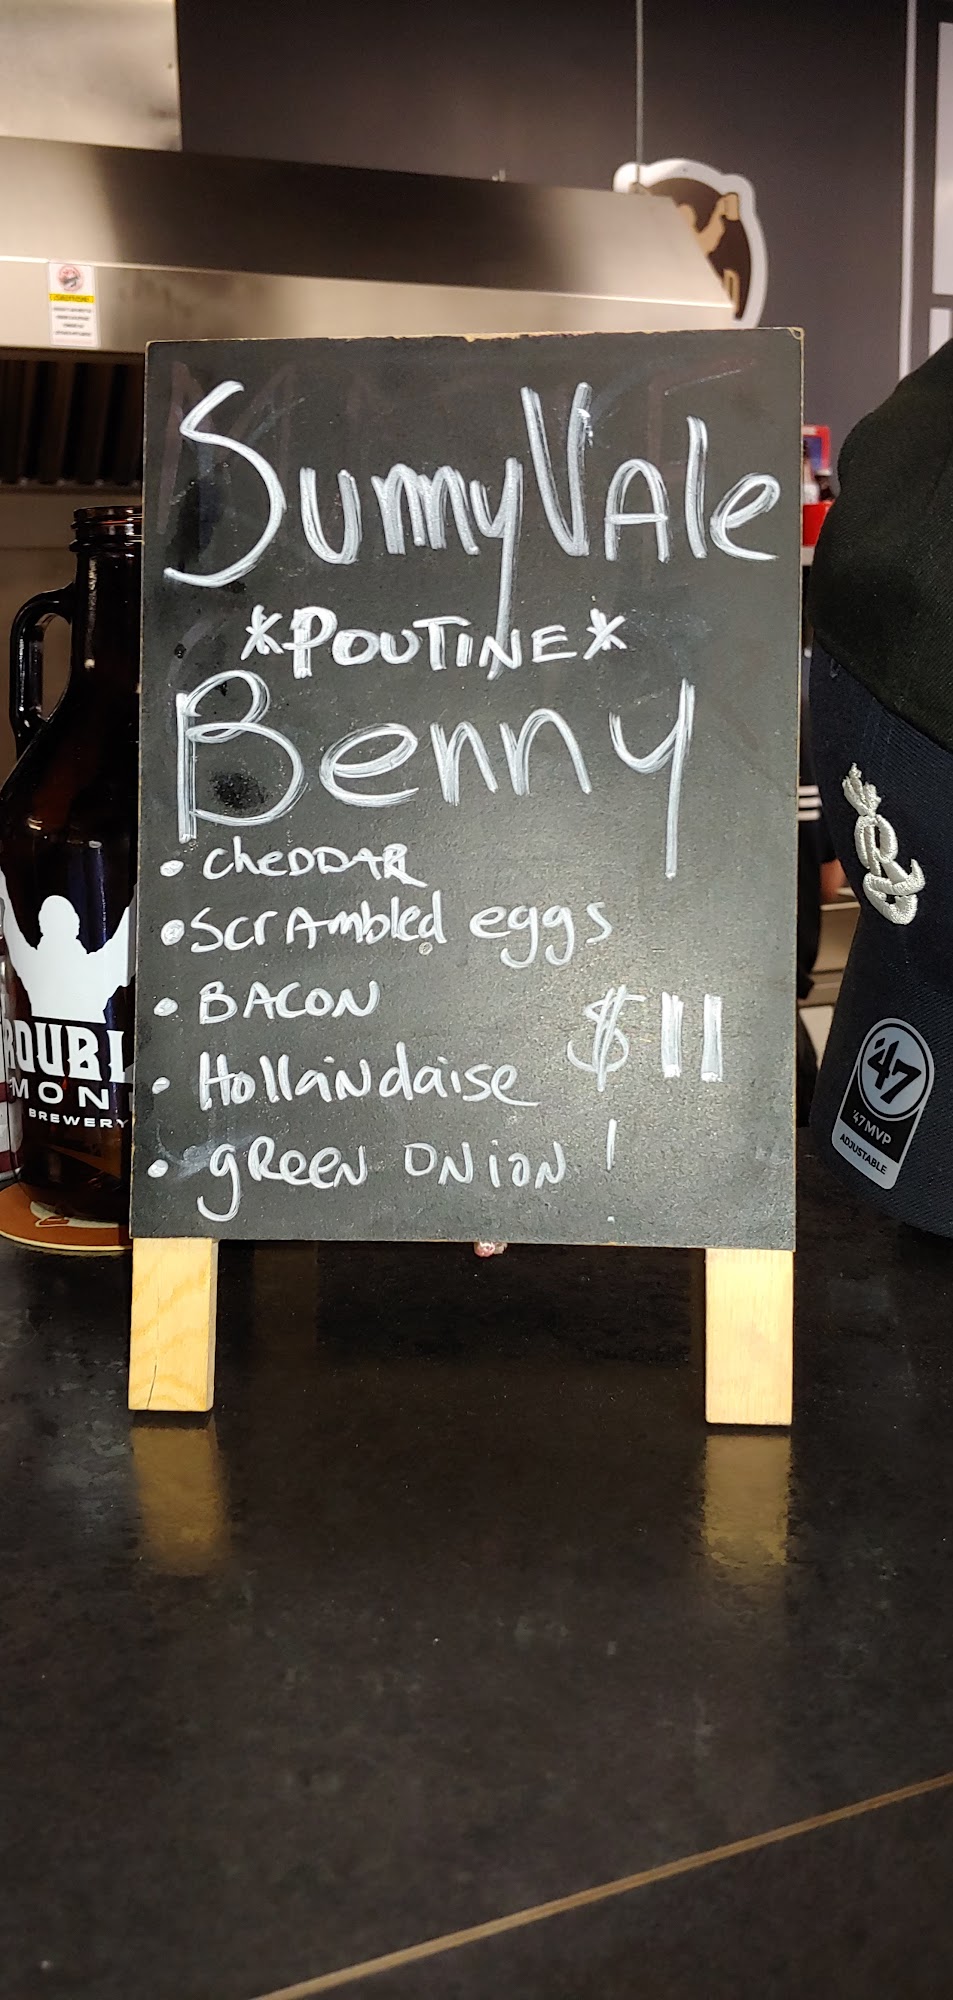 SunnyVale
*POUTINE*
Benny
• cheDDAR
• ScrAmbled eggs
• BACON
$11
• HollaiNdaise
• gReeN ONiON !
ROUBL
MON
BREWERY
R
'47
'47 MVP
ADJUSTABLE